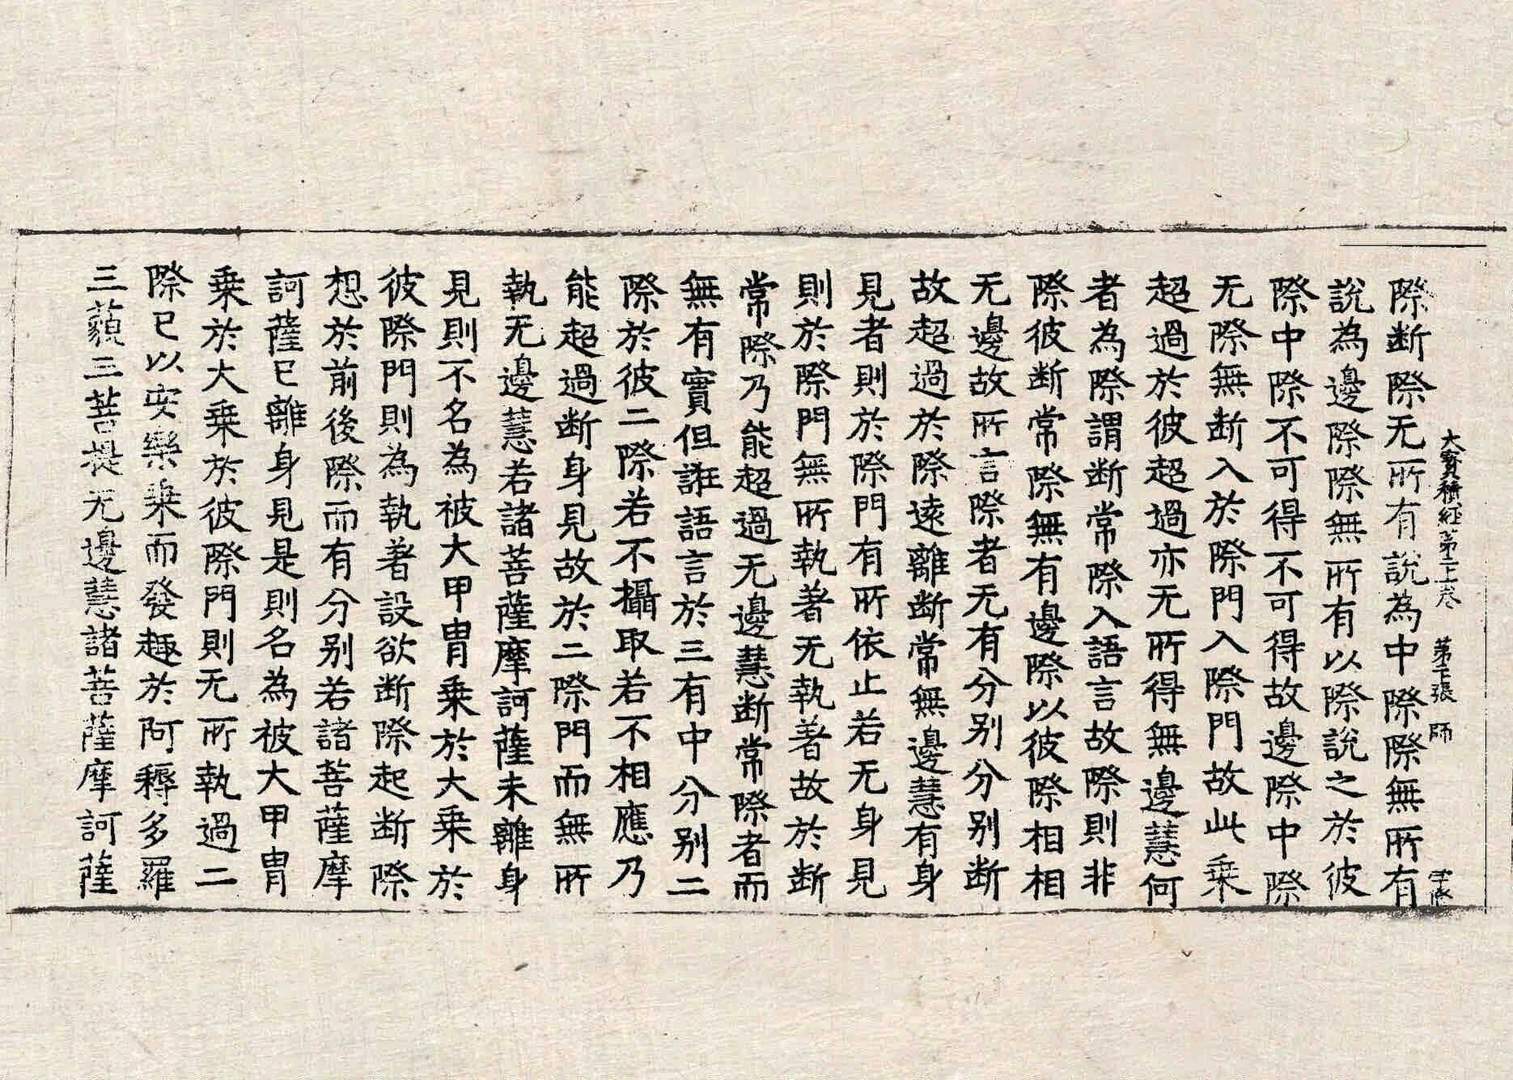 大寳積経第二十二卷 第七張 師
際断際无所有說為中際際無所有
說為邊際際無所有以際說之於彼
際中際不可得不可得故邊際中際
无際無断入於際門入際門故此乗
超過於彼超過亦无所得無邊慧何
者為際謂断常際入語言故際則非
際彼断常際無有邊際以彼際相相
无邊故所言際者无有分别分别断
故超過於際遠離断常無邊慧有身
見者則於際門有所依止若无身見
則於際門無所執著无執著故於断
常際乃能超過无邊慧断常際者而
無有實但誑語言於三有中分别二
際於彼二際若不攝取若不相應乃
能超過断身見故於二際門而無所
執无邊慧若諸菩薩摩訶薩未離身
見則不名為被大甲胄乗於大乗於
彼際門則為執著設欲断際起断際
想於前後際而有分别若諸菩薩摩
訶薩已離身見是則名為被大甲胄
乗於大乗於彼際門則无所執過二
際已以安樂乗而發趣於阿耨多羅
三藐三菩提无邊慧諸菩薩摩訶薩